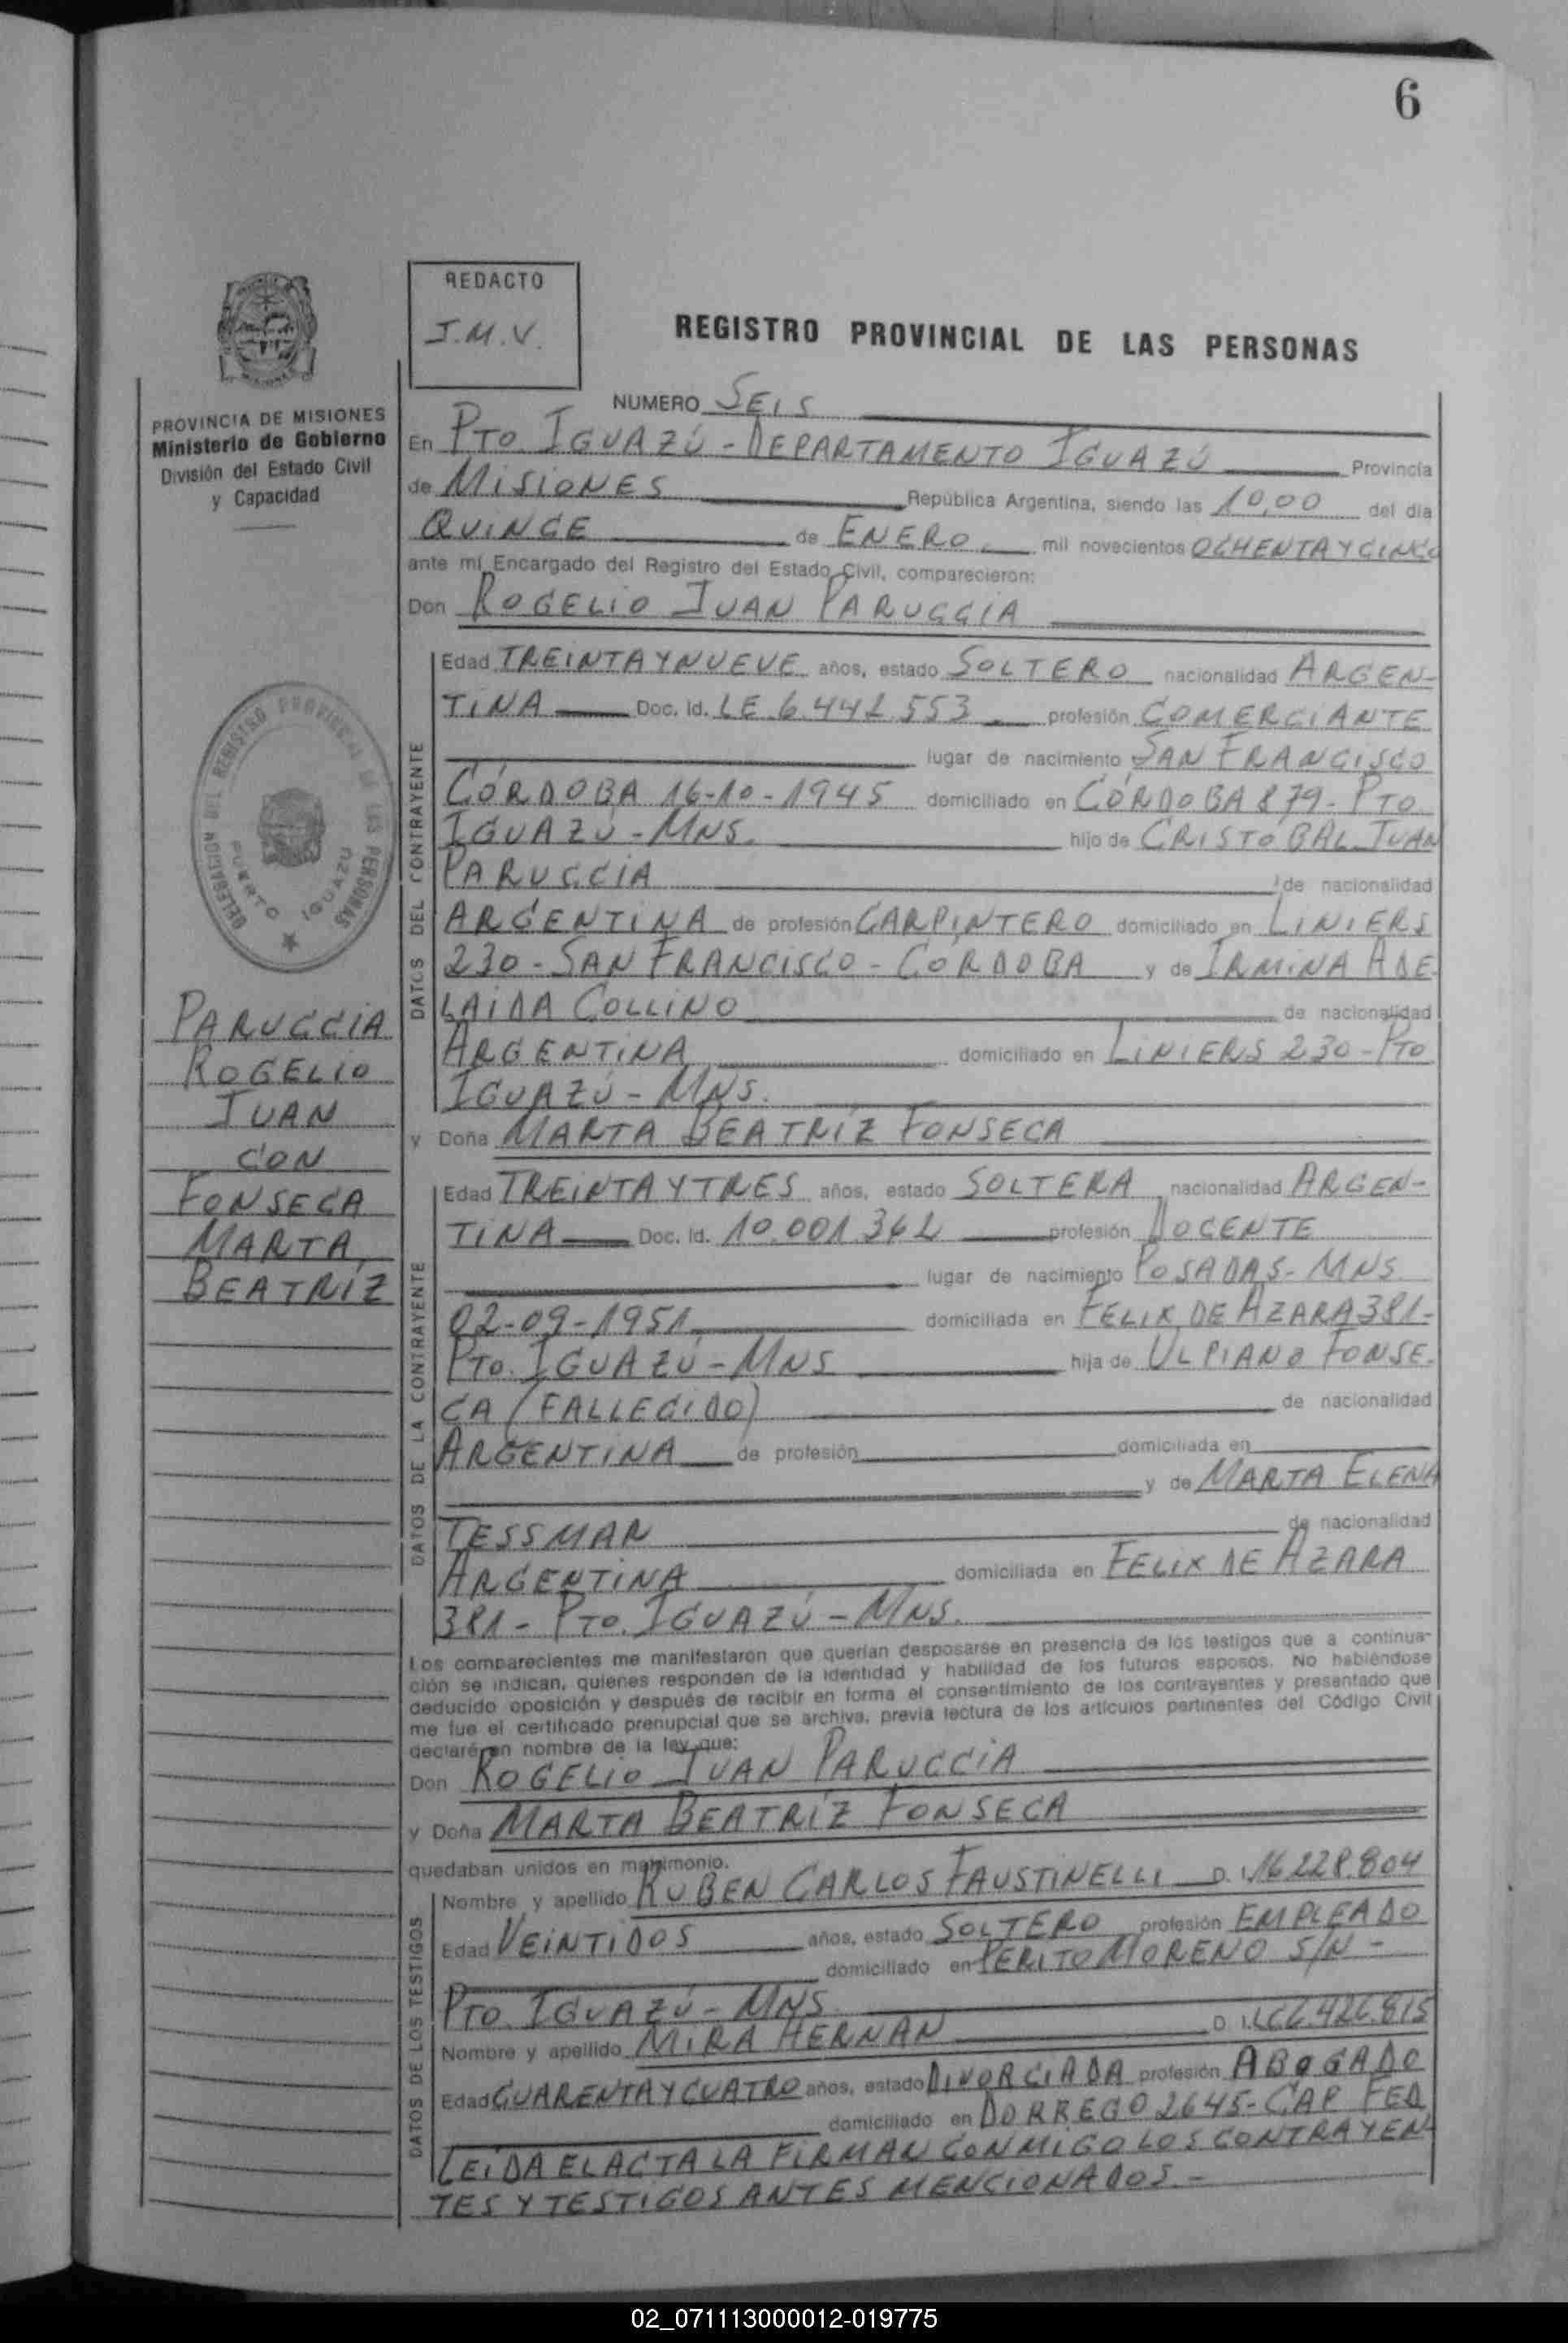 6
REDACTO
J.M.V.
REGISTRO PROVINCIAL DE LAS PERSONAS
PROVINCIA DE MISIONES
Ministerio de Gobierno
División del Estado Civil
y Capacidad
NUMERO SEIS
En PTO IGUAZÚ - DEPARTAMENTO IGUAZÚ Provincia
de MISIONES República Argentina, siendo las 10,00 del día
QUINCE de ENERO mil novecientos OCHENTA Y CINCO
ante mí Encargado del Registro del Estado Civil, comparecieron:
Don ROGELIO JUAN PARUCCIA
DATOS DEL CONTRAYENTE
Edad TREINTA Y NUEVE años, estado SOLTERO nacionalidad ARGEN-
TINA Doc. Id. LE 6.442.553 profesión COMERCIANTE
lugar de nacimiento SAN FRANCISCO
CÓRDOBA 16-10-1945 domiciliado en CÓRDOBA 879- PTO
IGUAZÚ - MNS. hijo de CRISTÓBAL JUAN
PARUCCIA de nacionalidad
ARGENTINA de profesión CARPINTERO domiciliado en LINIERS
230 - SAN FRANCISCO - CORDOBA y de IRMINA ADE
LAIDA COLLINO de nacionalidad
ARGENTINA domiciliado en LINIERS 230 - PTO
IGUAZÚ - MNS.
y Doña MARTA BEATRÍZ FONSECA
DATOS DE LA CONTRAYENTE
Edad TREINTA Y TRES años, estado SOLTERA nacionalidad ARGEN-
TINA Doc. Id. 10.001.362 profesión DOCENTE
lugar de nacimiento POSADAS - MNS.
02-09-1951 domiciliada en FELIX DE AZARA 381-
PTO. IGUAZÚ - MNS hija de ULPIANO FONSE-
CA (FALLECIDO) de nacionalidad
ARGENTINA de profesión domiciliada en
y de MARTA ELENA
TESSMAR de nacionalidad
ARGENTINA domiciliada en FELIX DE AZARA
381 - PTO. IGUAZÚ - MNS.
Los comparecientes me manifestaron que querían desposarse en presencia de los testigos que a continua-
ción se indican, quienes responden de la identidad y habilidad de los futuros esposos. No habiéndose
deducido oposición y después de recibir en forma el consentimiento de los contrayentes y presentado que
me fue el certificado prenupcial que se archiva, previa lectura de los artículos pertinentes del Código Civil
declaré en nombre de la ley que:
Don ROGELIO JUAN PARUCCIA
y Doña MARTA BEATRÍZ FONSECA
quedaban unidos en matrimonio.
DATOS DE LOS TESTIGOS
Nombre y apellido RUBEN CARLOS FAUSTINELLI D.I. 16.228.804
Edad VEINTIDOS años, estado SOLTERO profesión EMPLEADO
domiciliado en PERITO MORENO S/N -
PTO IGUAZÚ - MNS
Nombre y apellido MIRA HERNAN D I.
Edad CUARENTA Y CUATRO años, estado DIVORCIADA profesión ABOGADO
domiciliado en DORREGO 2645 - CAP FED
LEIDA EL ACTA LA FIRMAN CONMIGO LOS CONTRAYEN
TES Y TESTIGOS ANTES MENCIONADOS.-
DELEGACION DEL REGISTRO PROVINCIAL DE LAS PERSONAS
PUERTO IGUAZU
PARUCCIA
ROGELIO
JUAN
CON
FONSECA
MARTA
BEATRÍZ
02_071113000012-019775